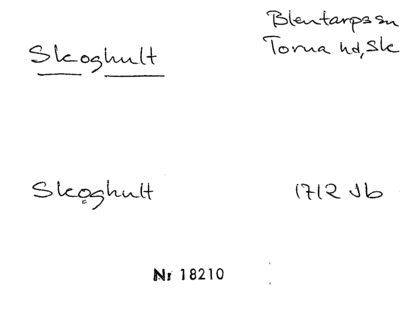 Skoghult
Blentarps sn
Torna hd, Sk
Skoghult
1712 Jb
Nr 18210